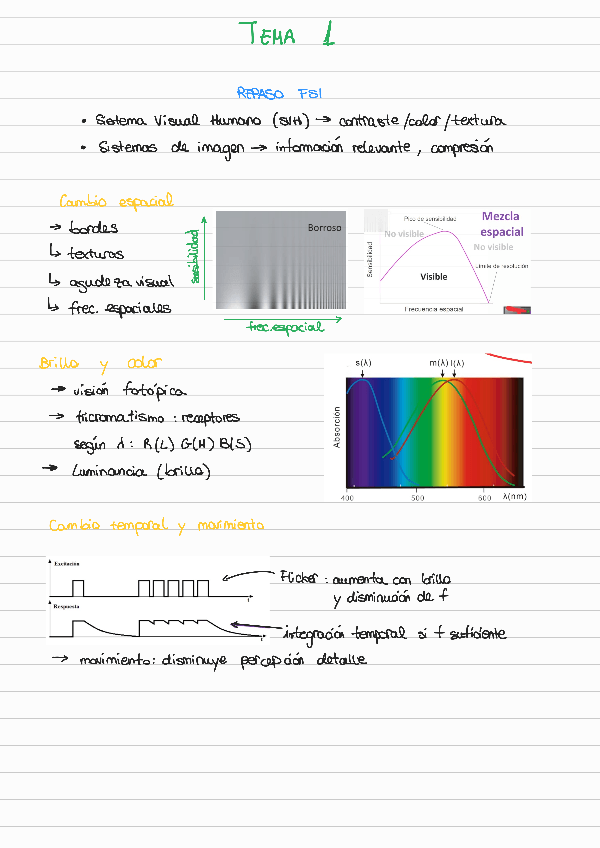 TEMA 1
REPASO FSI
• Sistema Visual Humano (SVH) → contraste/color/textura
• Sistemas de imagen → información relevante, compresión
Cambio espacial
→ bordes
↳ texturas
↳ agudeza visual
↳ frec. espaciales
sensibilidad
Borroso
frec.espacial
Mezcla
espacial
Pico de sensibilidad
No visible
No visible
Límite de resolución
Sensibilidad
Visible
Frecuencia espacial
Brillo y color
→ visión fotópica
→ tricromatismo : receptores
según λ: R(L) G(M) B(S)
→ Luminancia (brillo)
s(λ) m(λ) l(λ)
Absorción
400 500 600 λ(nm)
Cambio temporal y movimiento
Excitación
t
Respuesta
t
Flicker : aumenta con brillo
y disminución de f
integración temporal si f suficiente
→ movimiento: disminuye percepción detalle